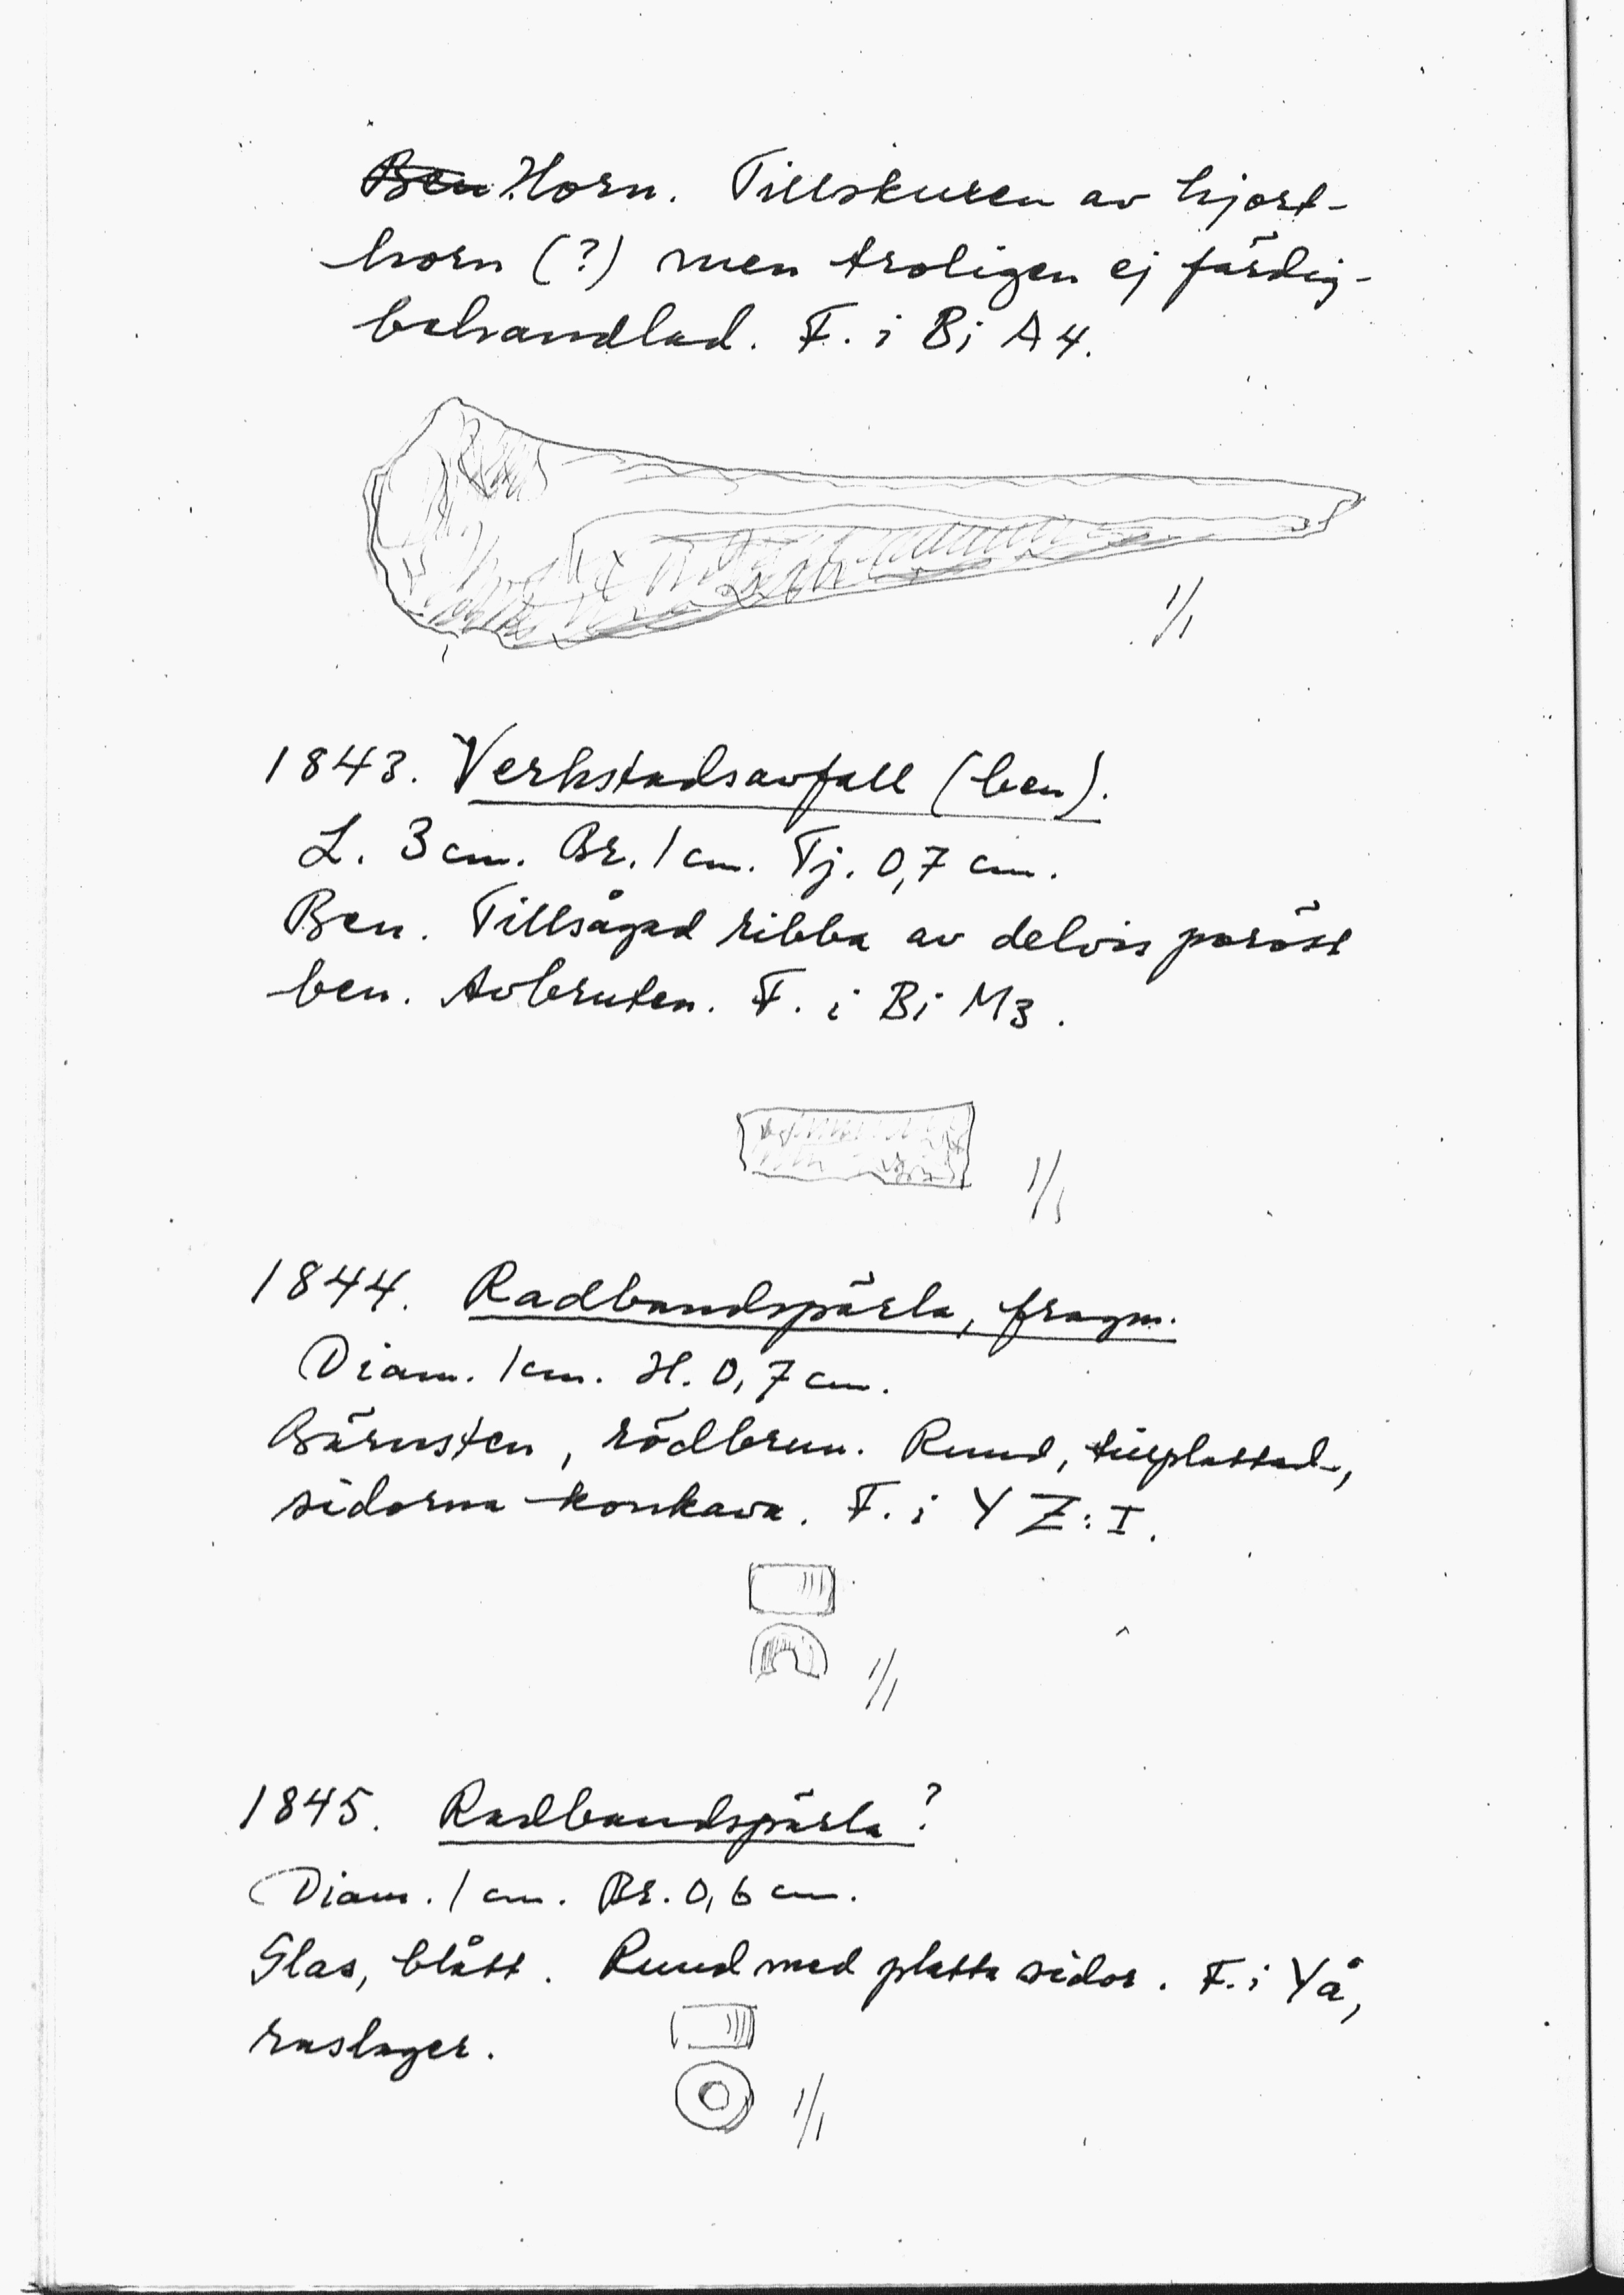 Ben Horn. Tillskuren av hjort-
horn (?) men troligen ej färdig-
behandlad. F. i Bi A4.
1/1
1843. Verkstadsavfall (ben).
L. 3 cm. Br. 1 cm. Tj. 0,7 cm.
Ben. Tillsågad ribba av delvis poröst
ben. Avbruten. F. i Bi M3.
1/1
1844. Radbandspärla, fragm.
Diam. 1 cm. H. 0,7 cm.
Bärnsten, rödbrun. Rund, tillplattad,
sidorna konkava. F. i Y Z:I.
1/1
1845. Radbandspärla?
Diam. 1 cm. Br. 0,6 cm.
Glas, blått. Rund med platta sidor. F. i Yå,
raslager.
1/1